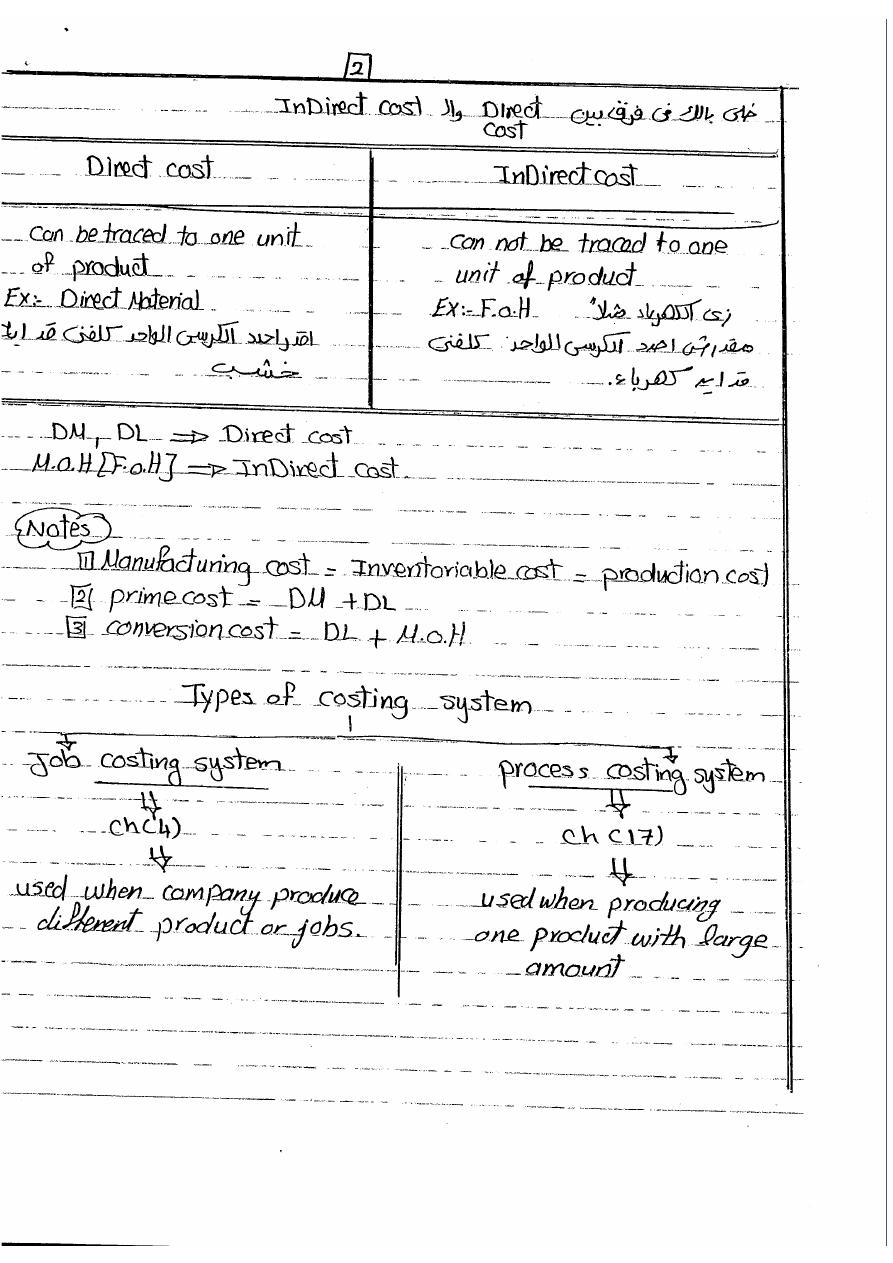 2
خلى بالك فى فرق بين Direct والـ InDirect cost
cost
Direct cost
InDirect cost
can be traced to one unit
of product
Ex:- Direct Material
اقدر احدد الكرسى الواحد كلفنى قد ايه
خشب
can not be traced to one
unit of product
Ex:- F.o.H زى الكهرباء مثلاً
مقدرش احدد الكرسى الواحد كلفنى
قد ايه كهرباء.
DM, DL => Direct cost
M.O.H [F.o.H] => InDirect cost.
Notes
1 Manufacturing cost = Inventoriable cost = production cost
2 prime cost = DM + DL
3 conversion cost = DL + M.O.H
Types of costing system
Job costing system
ch(4)
used when company produce
different product or jobs.
process costing system
ch (17)
used when producing
one product with large
amount